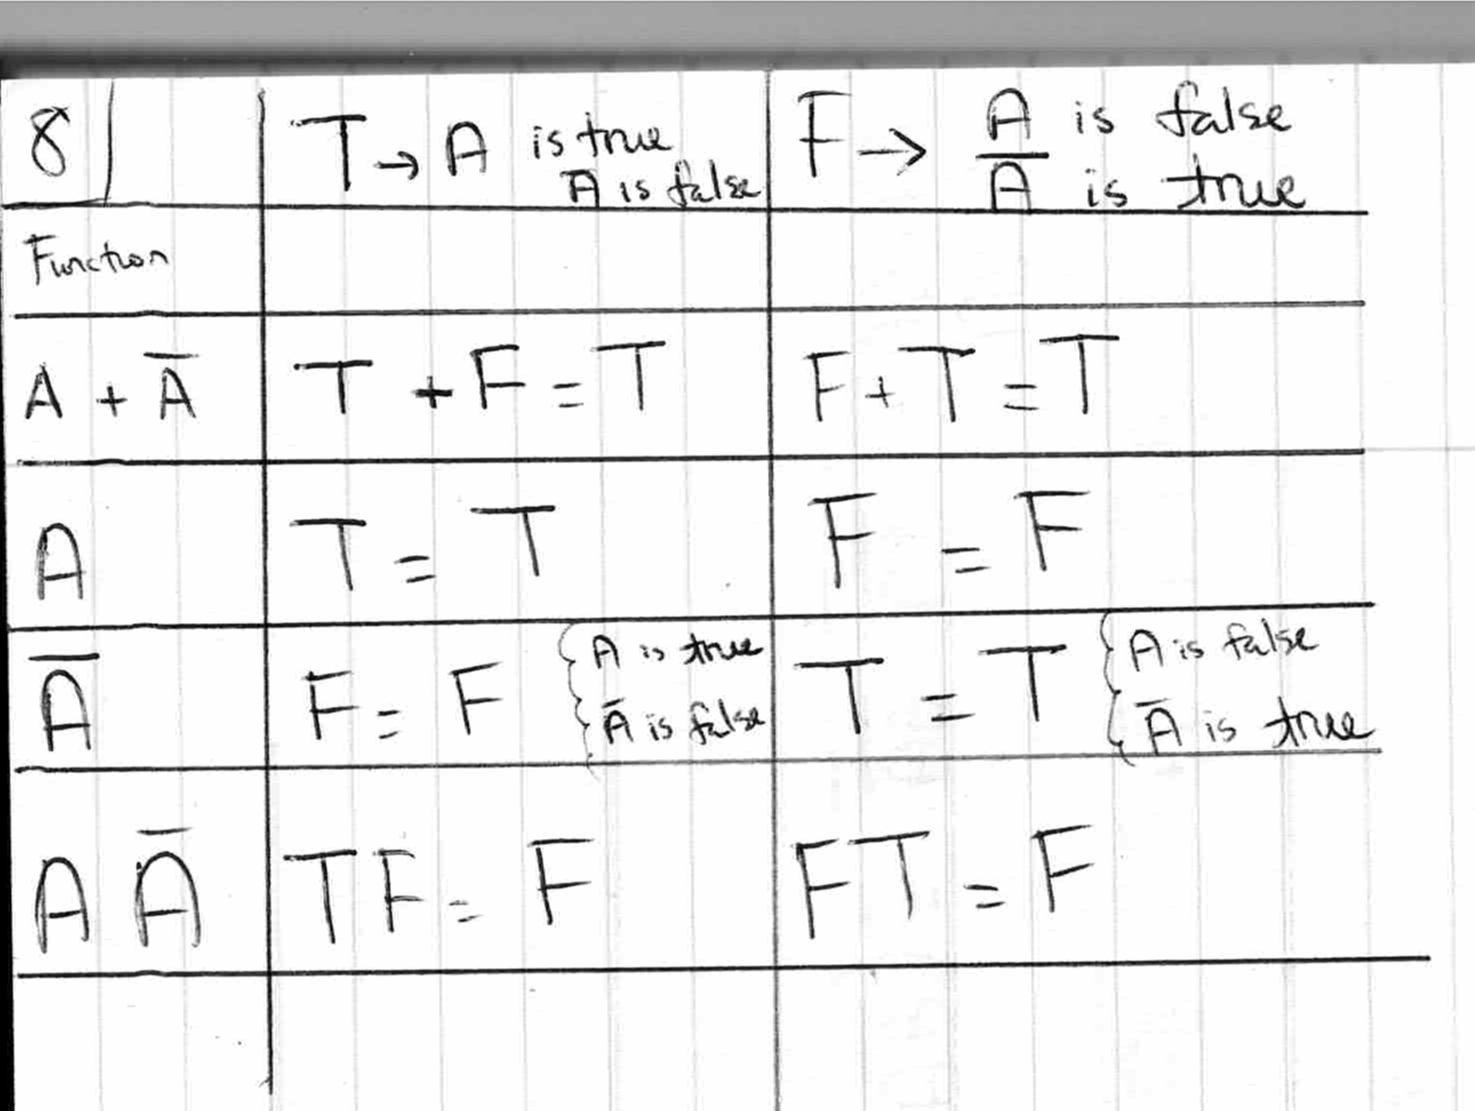 8
T → A is true
A̅ is false
F → A is false
A̅ is true
Function
A + A̅
T + F = T
F + T = T
A
T = T
F = F
A̅
F = F { A is true
{ A̅ is false
T = T { A is false
{ A̅ is true
A A̅
T F = F
F T = F